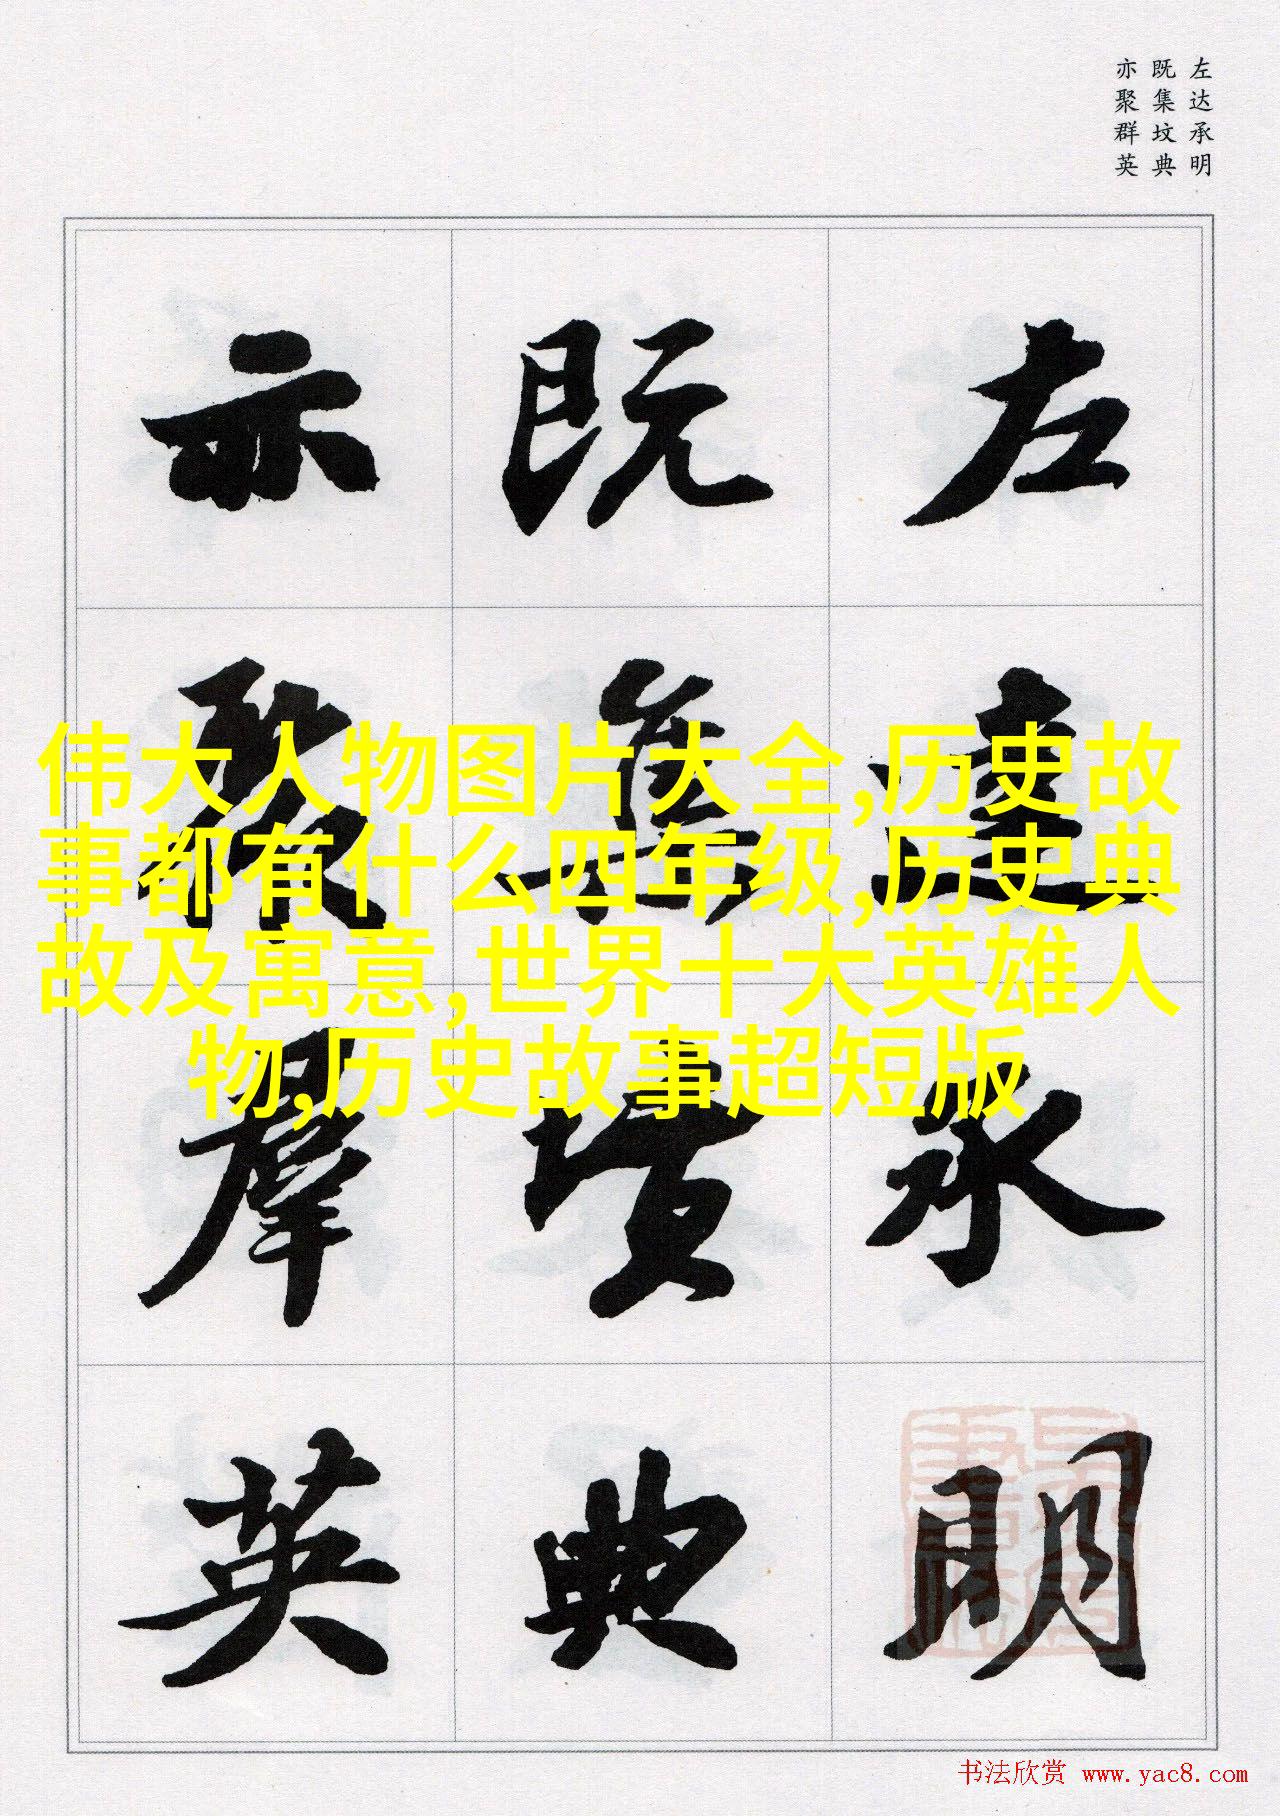 左达承明
既集坟典
亦聚群英
左達承明
既集墳典
亦聚羣英
伟大人物图片大全,历史故
事都有什么四年级,历史典
故及寓意,世界十大英雄人
物,历史故事超短版
书法欣赏 www.yac8.com